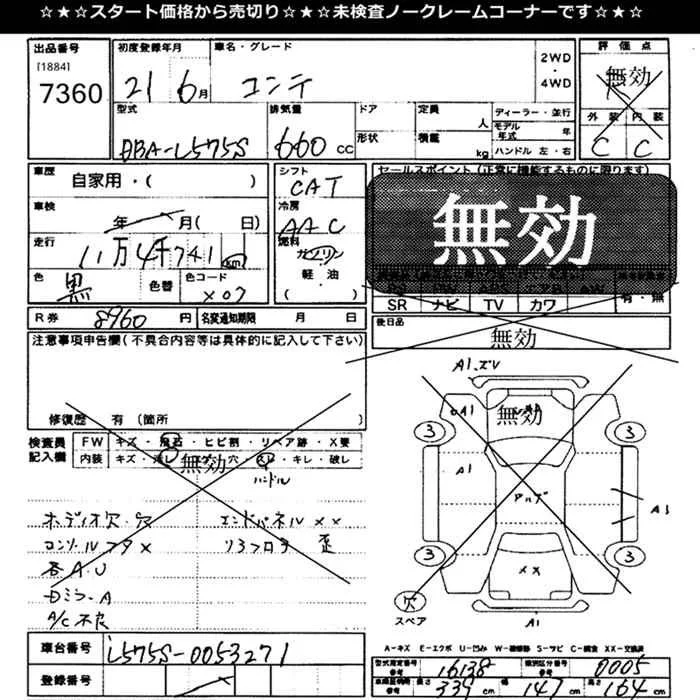 ☆★☆スタート価格から売切り☆★☆未検査ノークレームコーナーです☆★☆
出品番号
[1884]
7360
初度登録年月
21 6月
車名・グレード
コンテ
2WD
・
4WD
評価点
無効
外装 内装
C C
型式
DBA-L575S
排気量
660 cc
ドア
形状
定員
人
積載
kg
ディーラー・並行
モデル年式 年
ハンドル 左・右
車歴
自家用・( )
シフト
CAT
セールスポイント(正常に機能するものに限ります)
無効
車検
年 月( 日)
冷房
AAC
走行
11万4千741 km
燃料
ガソリン
軽・油
( )
色
黒
色替
色コード
X07
SR ナビ TV カワ
有・無
R券 8960 円
名変通知期限 月 日
後日品
無効
注意事項申告欄(不具合内容等は具体的に記入して下さい)
修復歴 有(箇所 )
検査員記入欄
FW キズ・飛石・ヒビ割・リペア跡・X要
内装 キズ・汚し・コゲ・穴・スレ・キレ・破し
無効
ハンドル
ホディオ欠・穴
エンドパネル××
コンソールフタ×
リヤフロア 歪
各A.U
ドミラーA
A/C不良
A1.ズレ
A1
無効
3
3
A1
アルプ
A3
3
3
××
欠
スペア
A1
車台番号
L575S-0053271
登録番号
A-キズ E-エクボ U-凹み W-補修跡 S-サビ C-腐食 XX-交換済
型式指定番号 参考 16138
類別区分番号 参考 0005
車庫証明用 参考
長さ 339 cm
幅 147 cm
高さ 164 cm